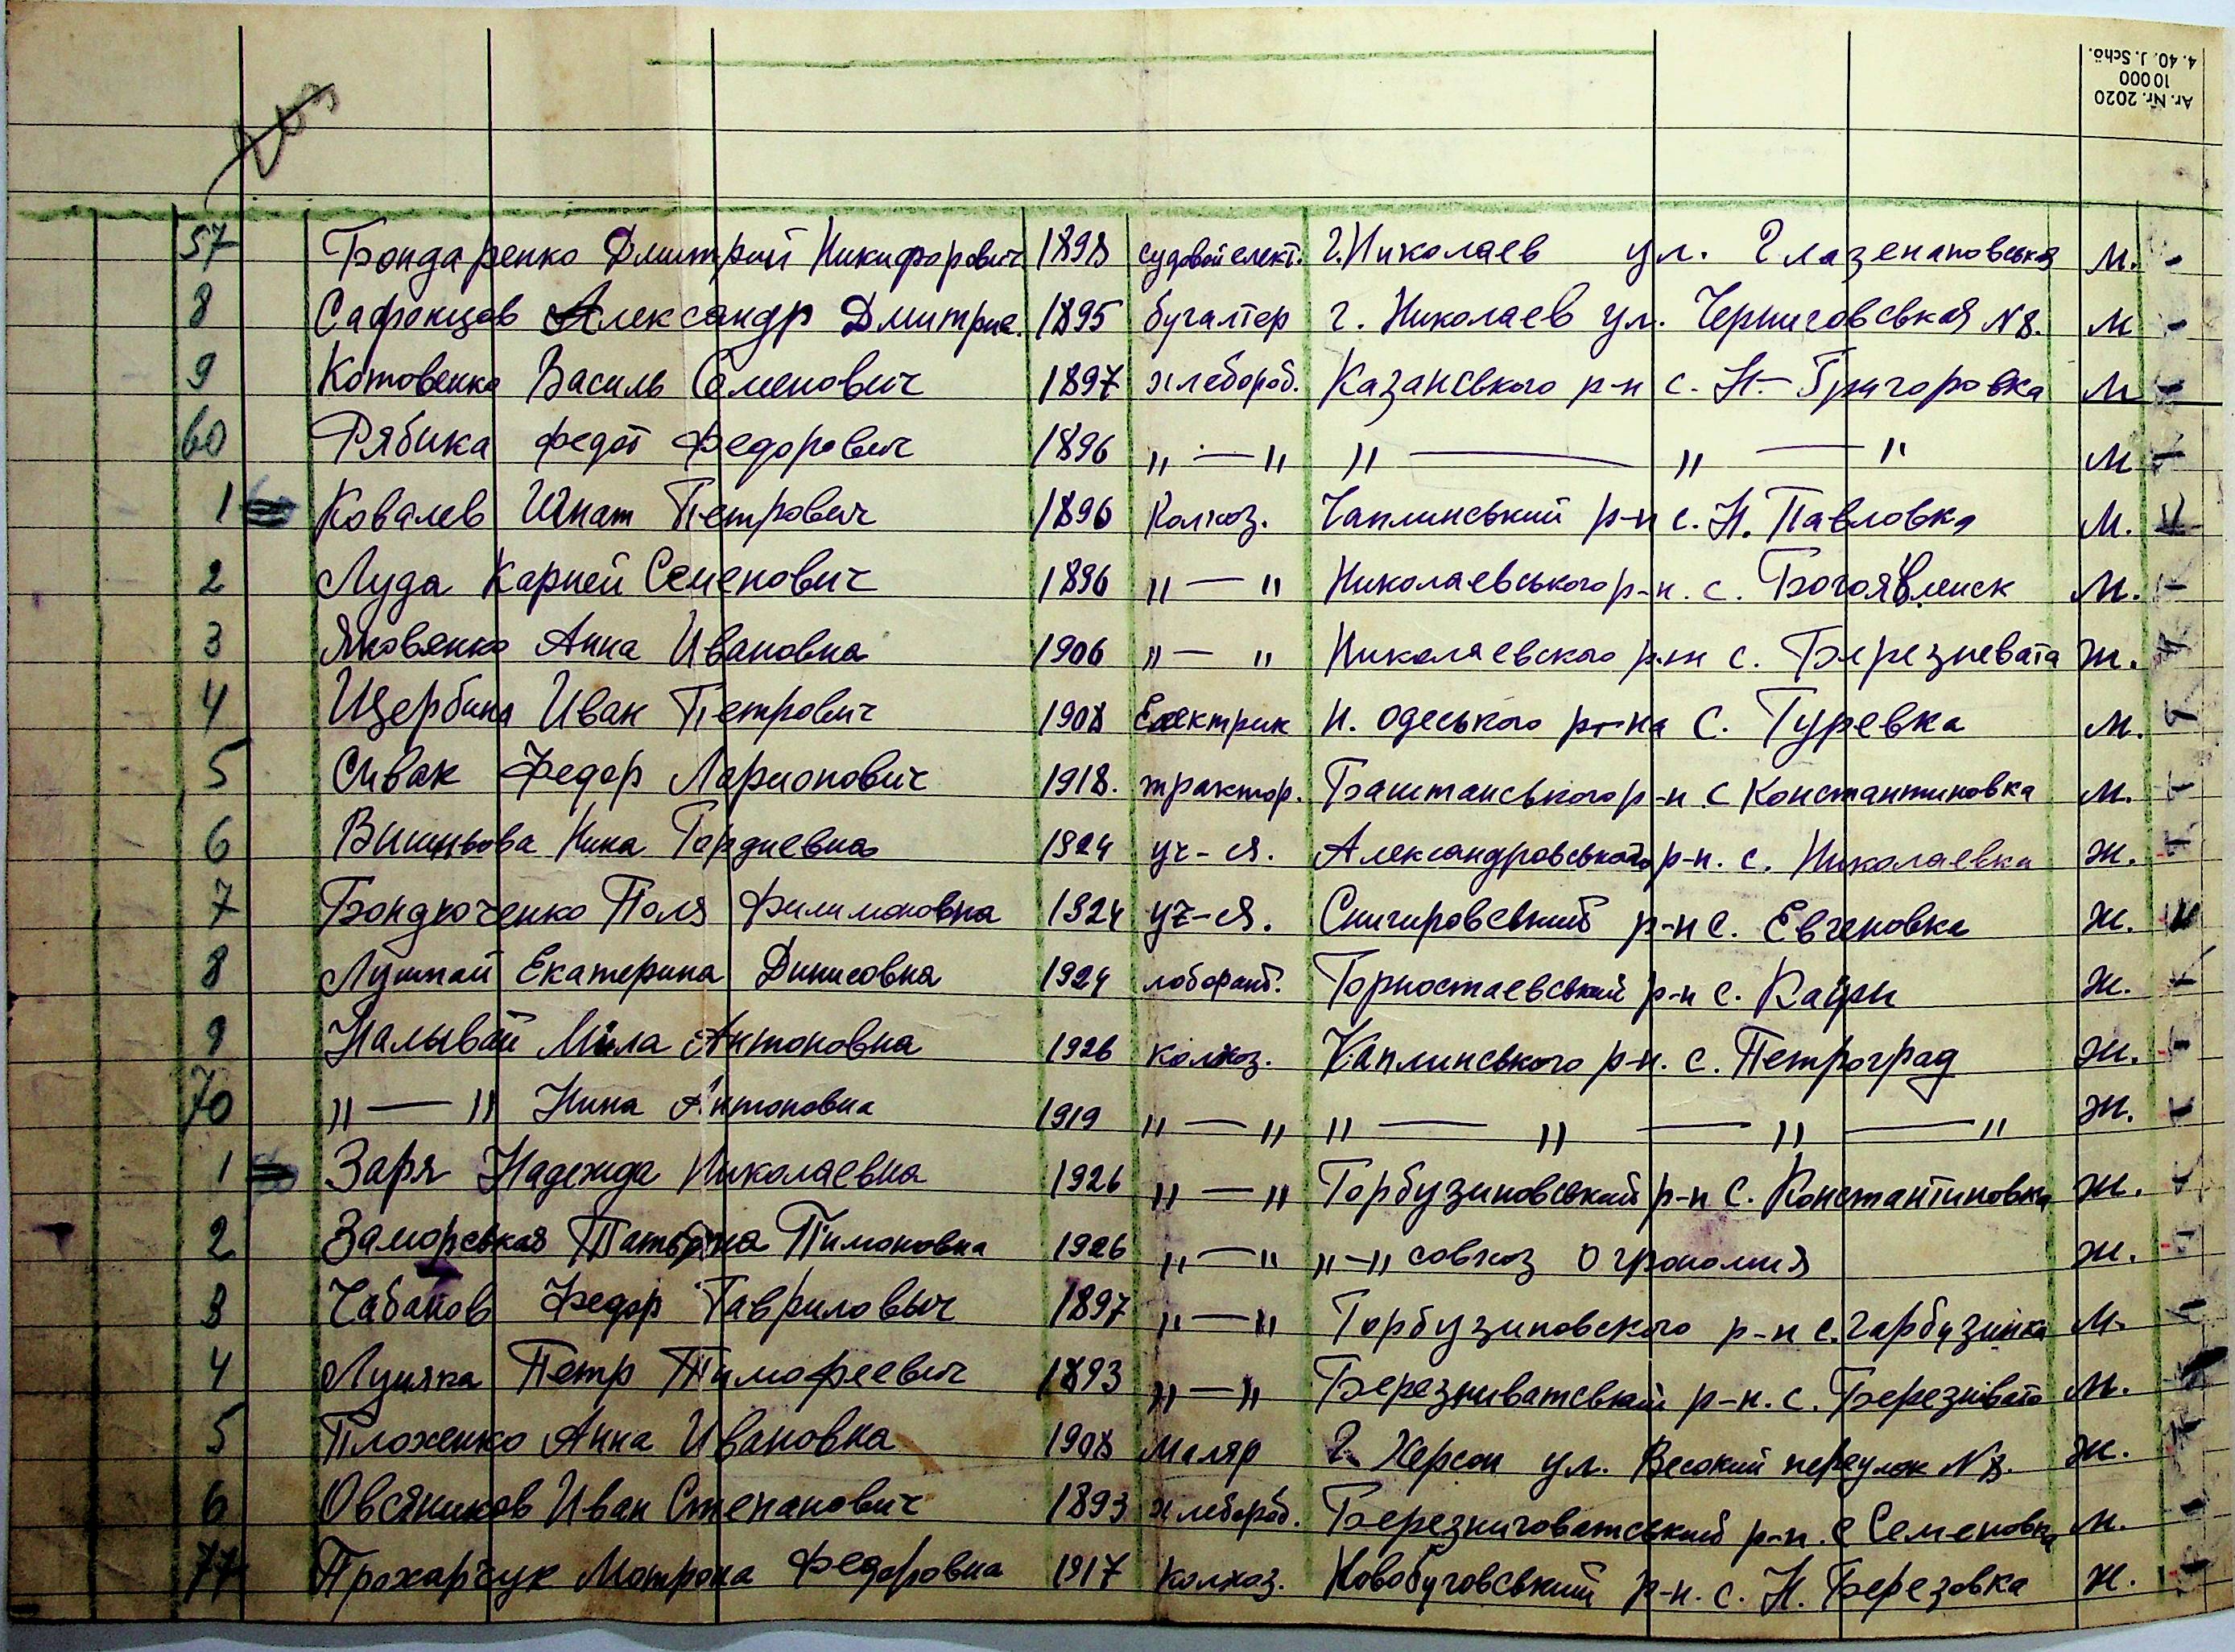 Ar. Nr. 2020
10 000
4. 40. J. Schö.
57 Бондаренко Дмитрий Никифорович 1898 судовой елект. г. Николаев ул. Глазенаповськая М.
8 Сафонцов Александр Дмитрие. 1895 бугалтер г. Николаев ул. Черниговськая N 8. М
9 Котовенко Василь Семенович 1897 хлебороб. Казанського р-н с. Н-Григоровка М
60 Рябика Федот Федорович 1896 „ — „ „ — „ — „ М
1 Ковалев Игнат Петрович 1896 Колхоз. Чаплинський р-н с. Н. Павловка М.
2 Луда Карпей Семенович 1896 „ — „ Николаевського р-н. с. Богоявленск М.
3 Яковенко Анна Ивановна 1906 „ — „ Николаевского р-н с. Березневата Ж.
4 Щербина Иван Петрович 1908 Електрик Н. Одеського р-на с. Гуревка М.
5 Сивак Федор Ларионович 1918. трактор. Баштанського р-н с Константиновка М.
6 Вишньова Нина Гордиевна 1924 уч-ся. Александровського р-н. с. Николаевка Ж.
7 Бондюченко Поля Филимоновна 1924 уч-ся. Снигировський р-н с. Евгеновка Ж.
8 Лушпай Екатерина Динисовна 1924 лоборант. Горностаевський р-н с. Каири Ж.
9 Налывай Мила Антоновна 1926 колхоз. Каплинського р-н. с. Петроград Ж.
70 „ — „ Нина Антоновна 1919 „ — „ „ — „ — „ — „ Ж.
1 Заря Надежда Николаевна 1926 „ — „ Горбузиновський р-н с. Константиновка Ж.
2 Заморськая Татьяна Пимоновна 1926 „ — „ „ — „ совхоз Огрономия Ж.
3 Чабанов Федор Гавриловыч 1897 „ — „ Горбузиновского р-н с. Гарбузинка М.
4 Луцяка Петр Тимофеевич 1893 „ — „ Березниватський р-н. с. Березнівато М.
5 Плохенко Анна Ивановна 1908 Маляр г. Херсон ул. Високий переулок N 8. Ж.
6 Овсяников Иван Степанович 1893 хлебороб. Березниговатський р-н. с Семеновка М.
77 Прохарчук Мотрона Федоровна 1917 Колхоз. Новобуговський р-н. с. Н. Березовка Ж.